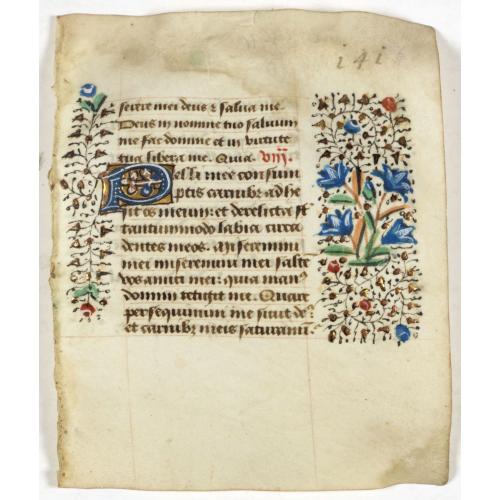 141
serere mei deus & salva me
Deus in nomine tuo salvum
me fac domine et in virtute
tua libera me. Quia. viii.
Pelli mee consum
ptis carnibz adhe
sit os meum: et derelicta st
tantummodo labia circa
dentes meos. Miseremini
mei miseremini mei salte
vos amici mei: quia man9
domini tetigit me. Quare
persequimini me sicut de9
et carnibz meis saturami